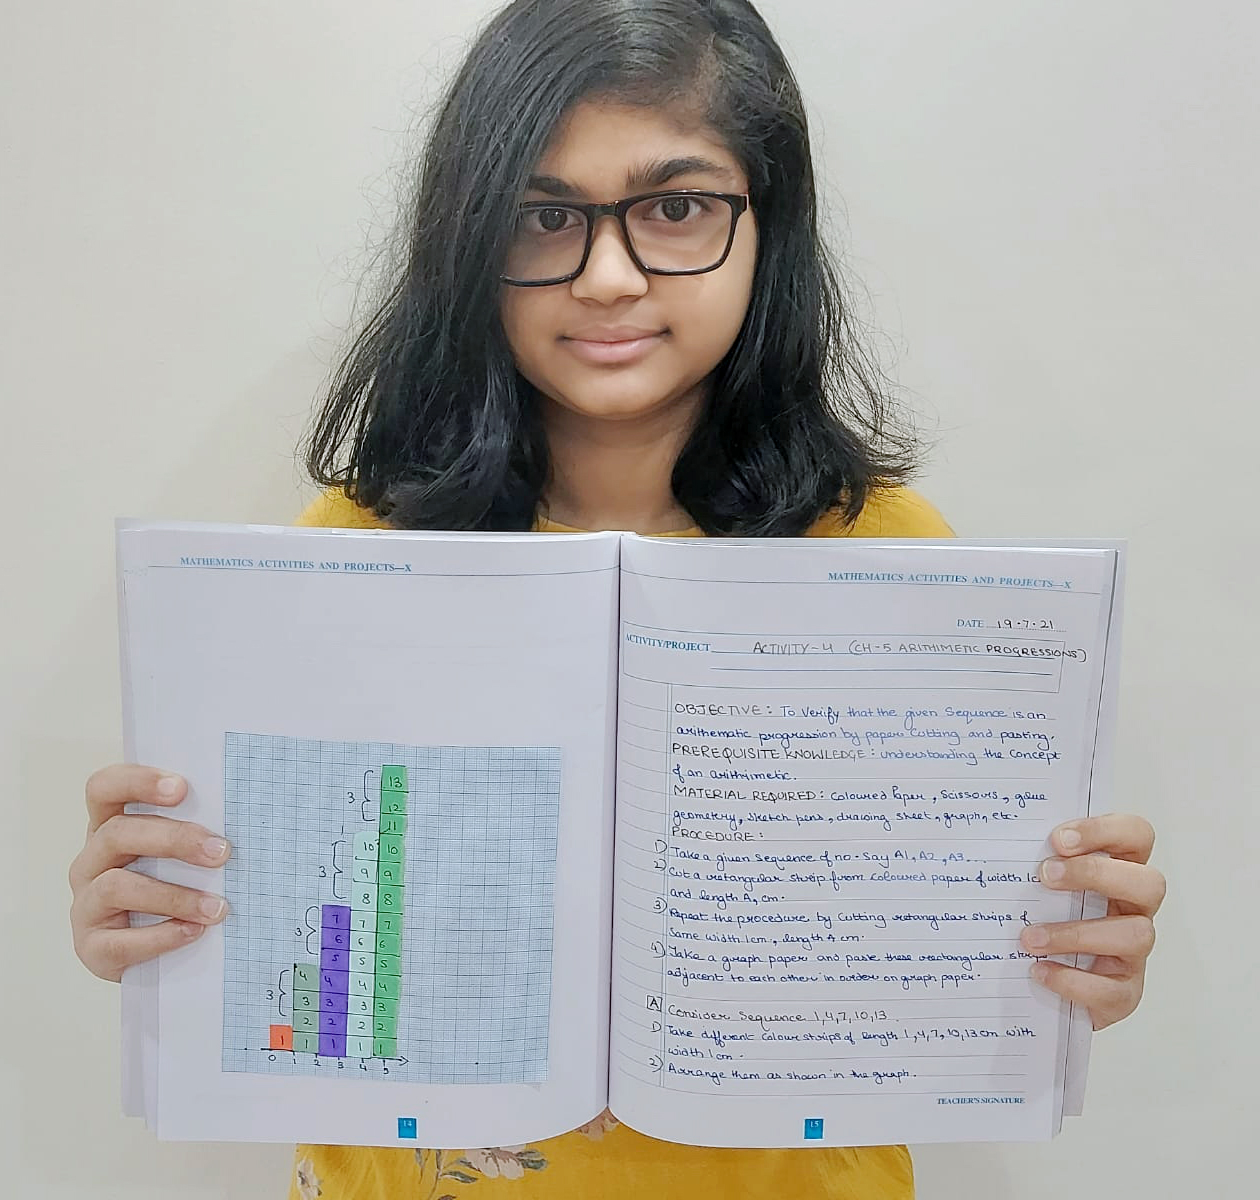 MATHEMATICS ACTIVITIES AND PROJECTS—X
3 13
12
11
3 10 10
9 9
8 8
3 7 7 7
6 6 6
5 5 5
3 4 4 4 4
3 3 3 3
2 2 2 2
1 1 1 1 1
0 1 2 3 4 5
14
MATHEMATICS ACTIVITIES AND PROJECTS—X
DATE 19.7.21
ACTIVITY/PROJECT ACTIVITY-4 (CH-5 ARITHIMETIC PROGRESSIONS)
OBJECTIVE: To Verify that the given Sequence is an
arithematic progression by paper Cutting and pasting.
PREREQUISITE KNOWLEDGE: understanding the concept
of an arithimetic.
MATERIAL REQUIRED: Coloured Paper, Scissors, glue
geometry, sketch pens, drawing sheet, graph, etc.
PROCEDURE:
1) Take a given sequence of no. say A1, A2, A3...
2) Cut a rectangular strip from coloured paper of width 1c
and length A, cm.
3) Repeat the procedure by Cutting rectangular strips of
Same width 1cm, length A cm.
4) Take a graph paper and paste these rectangular strips
adjacent to each other in order on graph paper.
A Consider Sequence 1,4,7,10,13
1) Take different Colour strips of length 1,4,7,10,13 cm with
width 1cm.
2) Arrange them as shown in the graph.
TEACHER'S SIGNATURE
15